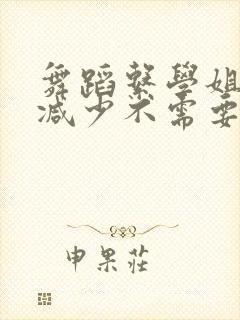 舞蹈繫學姐
減少不需要
申果莊